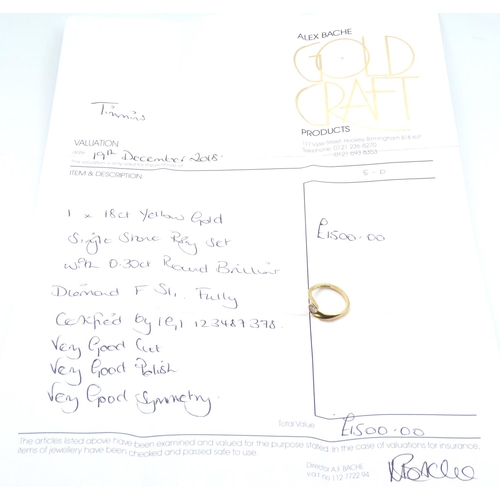 ALEX BACHE
GOLD
CRAFT
PRODUCTS
Timmis
VALUATION
DATE 19th December 2018.
ITEM & DESCRIPTION
£ - p
1 x 18ct Yellow Gold
Single Stone Ring Set
£1500.00
with 0.30ct Round Brilliant
Diamond F SI, . Fully
Certified by IGI 123487378.
Very Good Cut
Very Good Polish
Very Good Symmetry.
Total Value
£1500.00
The articles listed above have been examined and valued for the purpose stated. In the case of valuations for insurance,
items of jewellery have been checked and passed safe to use.
Director A.F. BACHE
V.A.T. no 112 7722 94